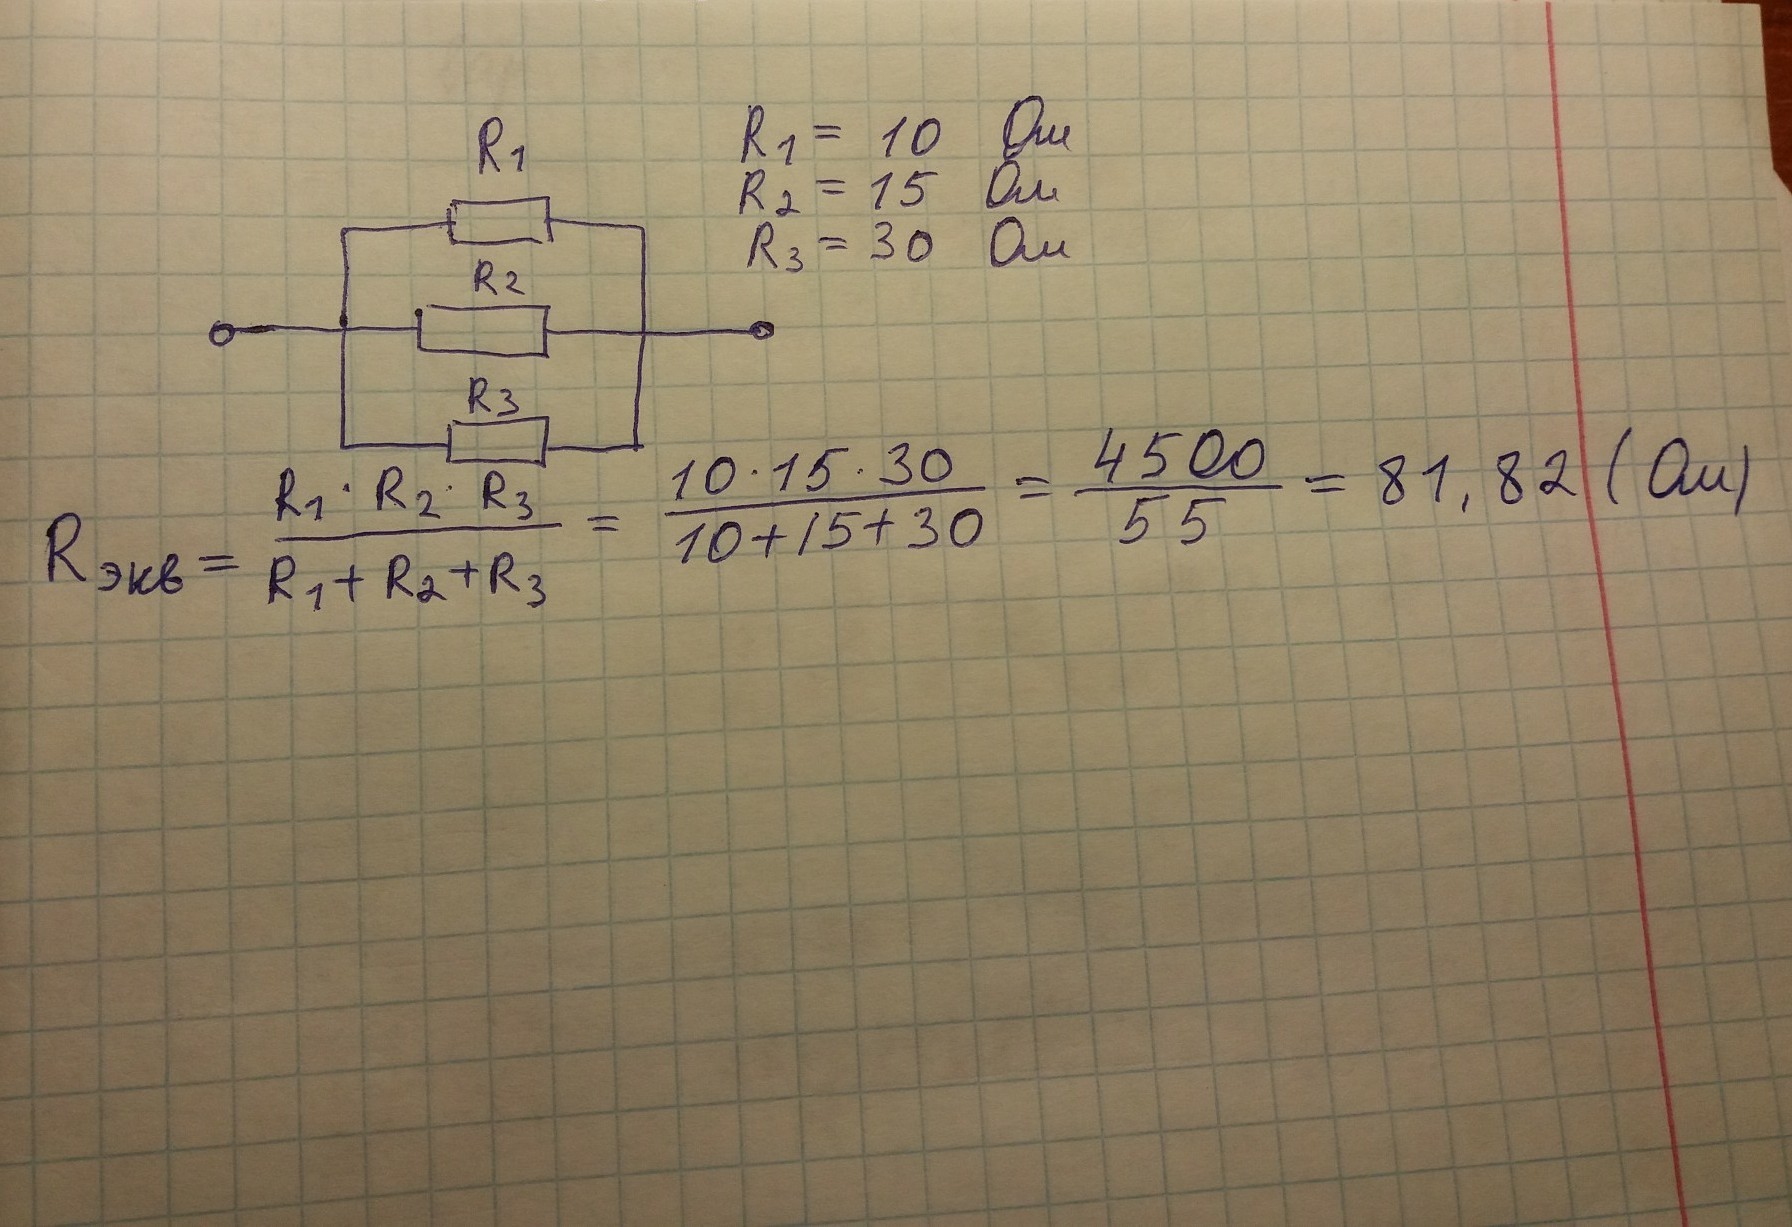 R1
R1 = 10 Ом
R2 = 15 Ом
R3 = 30 Ом
R2
R3
Rэкв = R1 · R2 · R3 / R1 + R2 + R3 = 10 · 15 · 30 / 10 + 15 + 30 = 4500 / 55 = 81,82 (Ом)